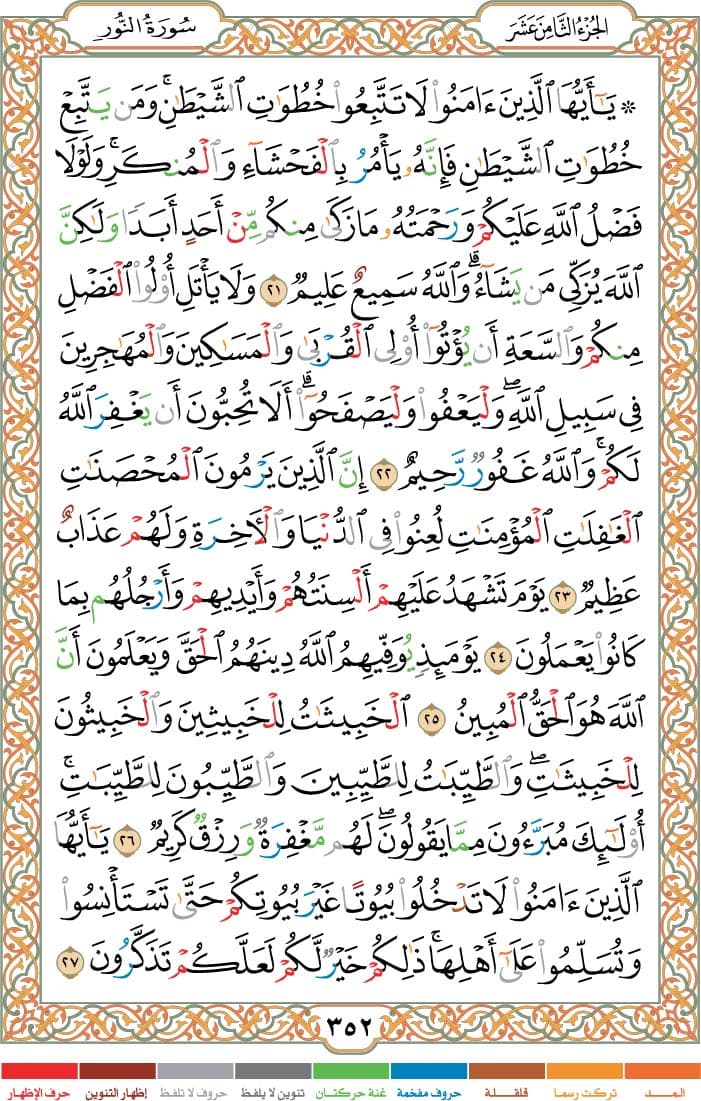 الجزء الثامن عشر
سورة النور
۞ يَٰٓأَيُّهَا ٱلَّذِينَ ءَامَنُوا۟ لَا تَتَّبِعُوا۟ خُطُوَٰتِ ٱلشَّيْطَٰنِ ۚ وَمَن يَتَّبِعْ
خُطُوَٰتِ ٱلشَّيْطَٰنِ فَإِنَّهُۥ يَأْمُرُ بِٱلْفَحْشَآءِ وَٱلْمُنكَرِ ۚ وَلَوْلَا
فَضْلُ ٱللَّهِ عَلَيْكُمْ وَرَحْمَتُهُۥ مَا زَكَىٰ مِنكُم مِّنْ أَحَدٍ أَبَدًا وَلَٰكِنَّ
ٱللَّهَ يُزَكِّى مَن يَشَآءُ ۗ وَٱللَّهُ سَمِيعٌ عَلِيمٌ ٢١ وَلَا يَأْتَلِ أُو۟لُوا۟ ٱلْفَضْلِ
مِنكُمْ وَٱلسَّعَةِ أَن يُؤْتُوٓا۟ أُو۟لِى ٱلْقُرْبَىٰ وَٱلْمَسَٰكِينَ وَٱلْمُهَٰجِرِينَ
فِى سَبِيلِ ٱللَّهِ ۖ وَلْيَعْفُوا۟ وَلْيَصْفَحُوٓا۟ ۗ أَلَا تُحِبُّونَ أَن يَغْفِرَ ٱللَّهُ
لَكُمْ ۚ وَٱللَّهُ غَفُورٌ رَّحِيمٌ ٢٢ إِنَّ ٱلَّذِينَ يَرْمُونَ ٱلْمُحْصَنَٰتِ
ٱلْغَٰفِلَٰتِ ٱلْمُؤْمِنَٰتِ لُعِنُوا۟ فِى ٱلدُّنْيَا وَٱلْءَاخِرَةِ وَلَهُمْ عَذَابٌ
عَظِيمٌ ٢٣ يَوْمَ تَشْهَدُ عَلَيْهِمْ أَلْسِنَتُهُمْ وَأَيْدِيهِمْ وَأَرْجُلُهُم بِمَا
كَانُوا۟ يَعْمَلُونَ ٢٤ يَوْمَئِذٍ يُوَفِّيهِمُ ٱللَّهُ دِينَهُمُ ٱلْحَقَّ وَيَعْلَمُونَ أَنَّ
ٱللَّهَ هُوَ ٱلْحَقُّ ٱلْمُبِينُ ٢٥ ٱلْخَبِيثَٰتُ لِلْخَبِيثِينَ وَٱلْخَبِيثُونَ
لِلْخَبِيثَٰتِ ۖ وَٱلطَّيِّبَٰتُ لِلطَّيِّبِينَ وَٱلطَّيِّبُونَ لِلطَّيِّبَٰتِ ۚ
أُو۟لَٰٓئِكَ مُبَرَّءُونَ مِمَّا يَقُولُونَ ۖ لَهُم مَّغْفِرَةٌ وَرِزْقٌ كَرِيمٌ ٢٦ يَٰٓأَيُّهَا
ٱلَّذِينَ ءَامَنُوا۟ لَا تَدْخُلُوا۟ بُيُوتًا غَيْرَ بُيُوتِكُمْ حَتَّىٰ تَسْتَأْنِسُوا۟
وَتُسَلِّمُوا۟ عَلَىٰٓ أَهْلِهَا ۚ ذَٰلِكُمْ خَيْرٌ لَّكُمْ لَعَلَّكُمْ تَذَكَّرُونَ ٢٧
٣٥٢
المــــد
تركت رسما
قلقلة
حروف مفخمة
غنة حركتان
تنوين لا يلفظ
حروف لا تلفظ
إظهار التنوين
حرف الإظهار